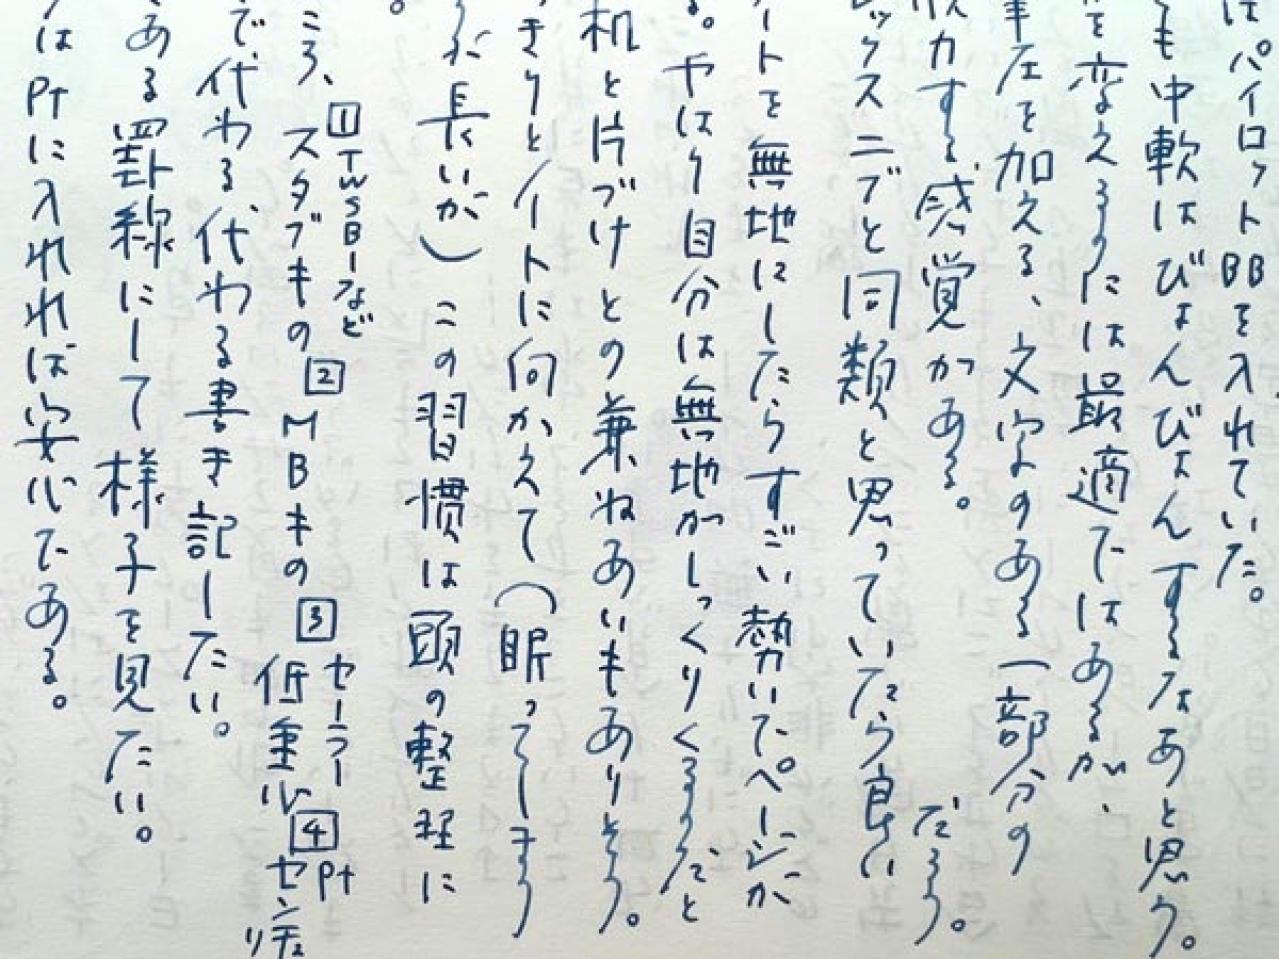 はパイロットBBを入れていた。
も中軟はびよんびよんするなあと思う。
を変えるのには最適ではあるが、
筆圧を加える、文字のある一部分の
力する感覚がある。だろう。
ックスニブと同類と思っていたら良い
ートを無地にしたらすごい勢いでページが
る。やはり自分は無地がしっくりくるのだと
机と片づけとの兼ねあいもありそう。
きりとノートに向かえて(眠ってしまう
長いが)この習慣は頭の整理に
。
ころ、①TWSBIなど
スタブキの②MBキの③セーラー
低重心④Pt
で、代わる代わる書き記したい。
ある罫線にして様子を見たい。
はPtに入れれば安心である。